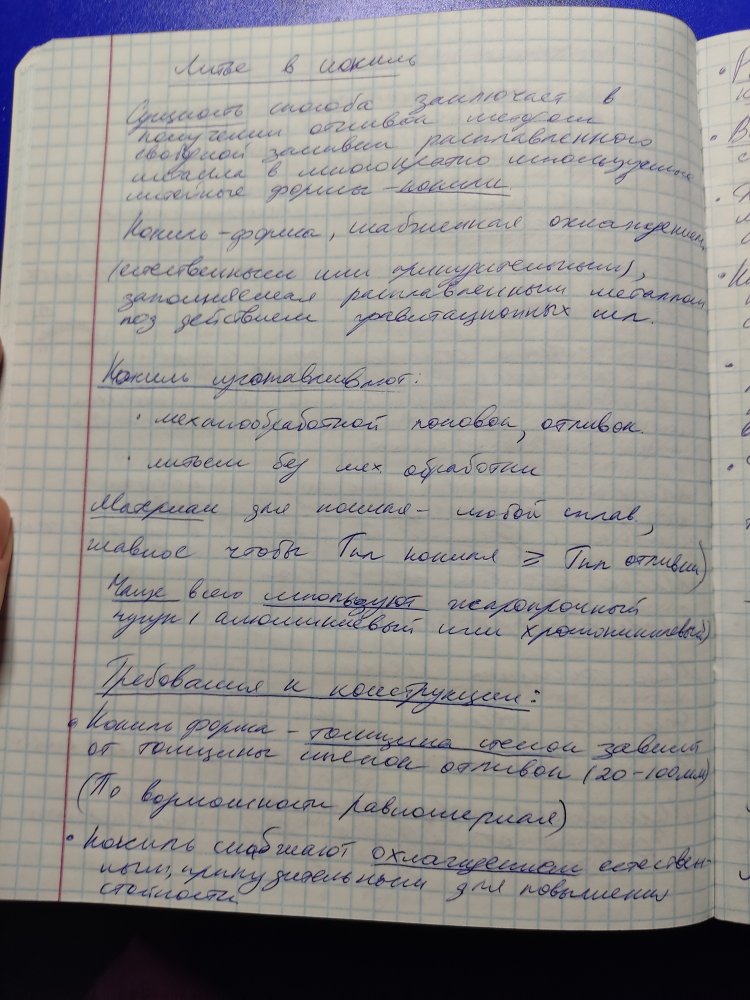 Литье в кокиль
Сущность способа заключает в
получении отливок методом
свободной заливки расплавленного
металла в многократно используемые
литейные формы - кокили
Кокиль - форма, снабженная охлаждением,
(естественным или принудительным),
заполняемая расплавленным металлом
под действием гравитационных сил.
Кокиль изготавливают:
· механообработкой поковок, отливок.
· литьем без мех обработки
Материал для кокиля - любой сплав,
главное чтобы Тпл кокиля ≥ Тпл отливки)
Чаще всего используют жаропрочный
чугун (алюминиевый или хромоникелевый)
Требования к конструкции:
• Кокиль форма - толщина стенок зависит
от толщины стенок отливок (20-100мм)
(По возможности равномерная)
• Кокиль снабжают охлаждением естествен-
ным, принудительным для повышения
стойкости
• В
• 
•
•
•
•